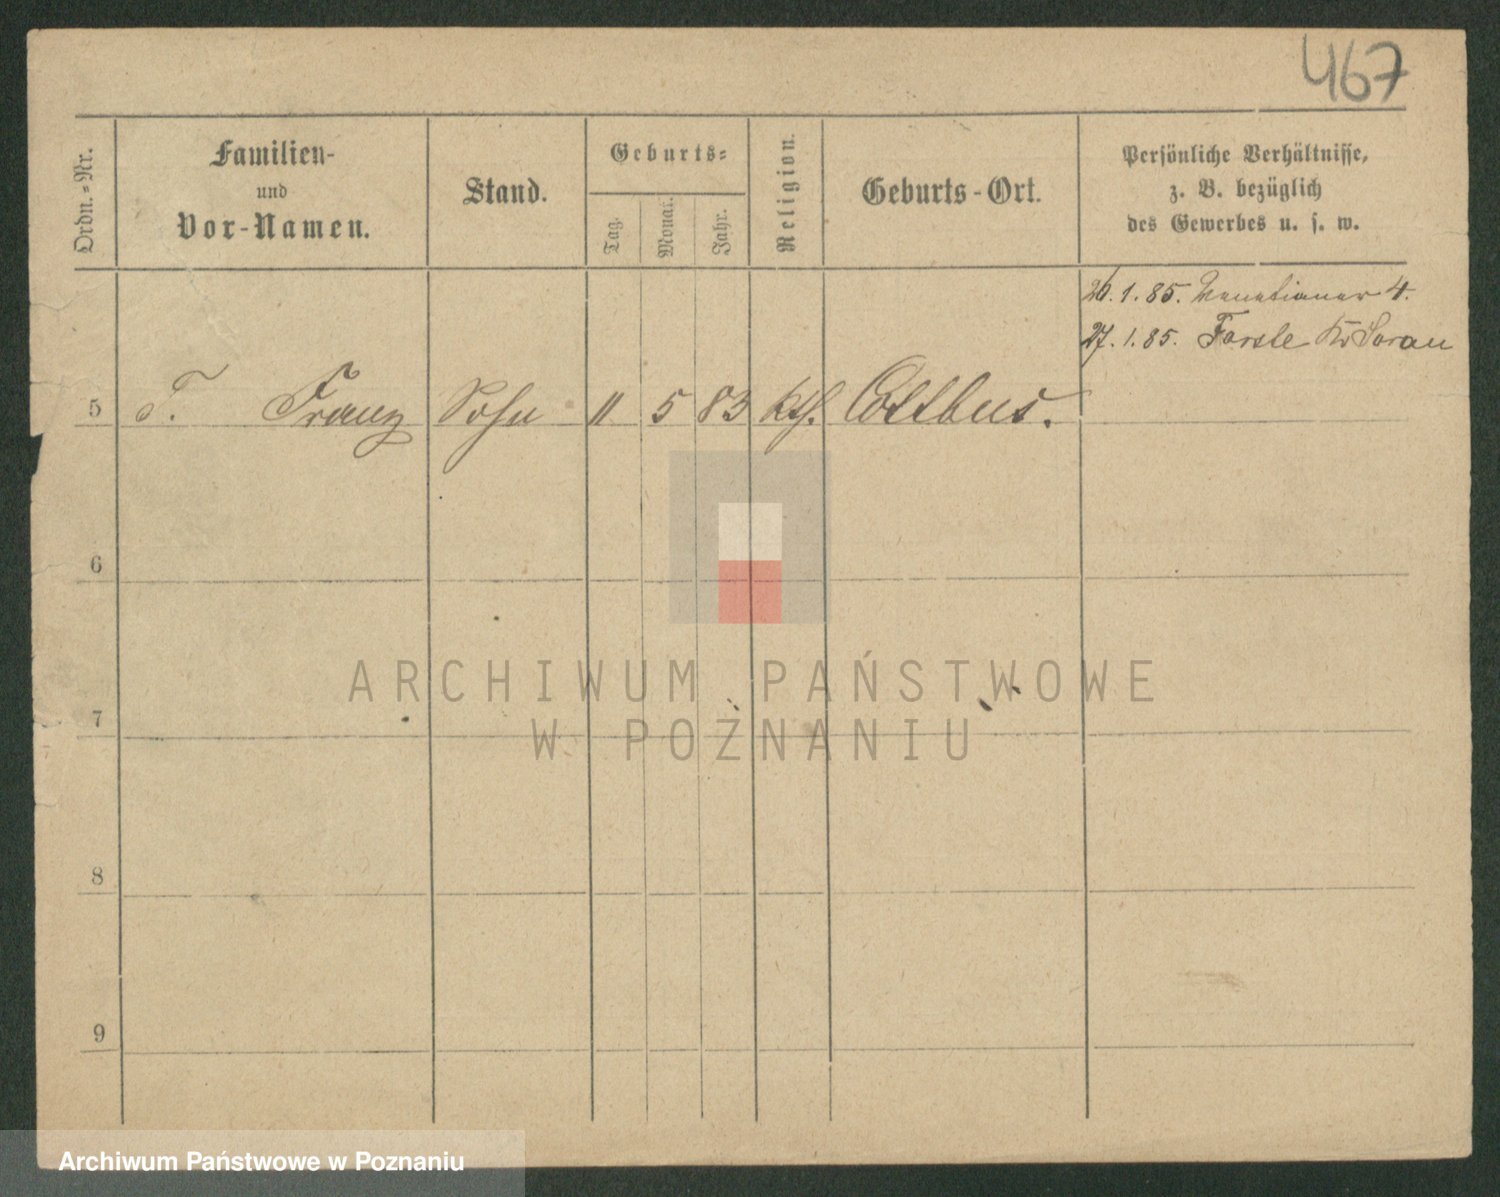 467
Ordn.-Nr.
Familien-
und
Vor-Namen.
Stand.
Geburts-
Tag.
Monat.
Jahr.
Religion.
Geburts-Ort.
Persönliche Verhältnisse,
z. B. bezüglich
des Gewerbes u. s. w.
26. 1. 85. Venetianer 4.
27. 1. 85. Forste Kr Sorau
5 T. Franz Sohn 11 5 83 kth. Cottbus.
6
7
8
9
ARCHIWUM PAŃSTWOWE
W POZNANIU
Archiwum Państwowe w Poznaniu